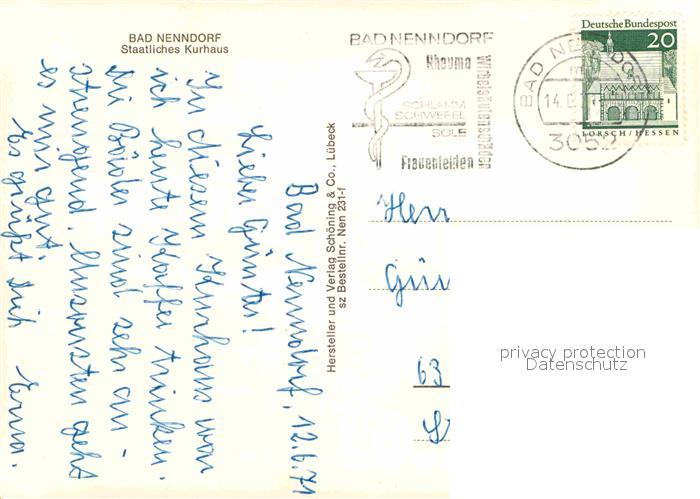 BAD NENNDORF
Staatliches Kurhaus
Bad Nenndorf, 12.6.71
Lieber Günter!
In diesem Kurhaus war
ich heute Kaffee trinken.
Die Bäder sind sehr an-
strengend. Ansonsten geht
es mir gut.
Es grüßt Dich Erna.
Hersteller und Verlag Schöning & Co., Lübeck
sz Bestellnr. Nen 231-f
BAD NENNDORF
Rheuma
Wirbelsäulenschäden
SCHLAMM
SCHWEFEL
SOLE
Frauenleiden
BAD NENNDO
14.6
3052
Deutsche Bundespost
20
LORSCH/HESSEN
Herr
Gün
63
privacy protection
Datenschutz